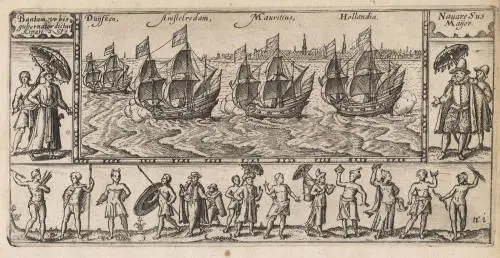 Bantam urbis
gubernator dictus
Cipate
Duÿfken,
Amstelredam,
Mauritius,
Hollandia,
Nauare Sus
Maior.